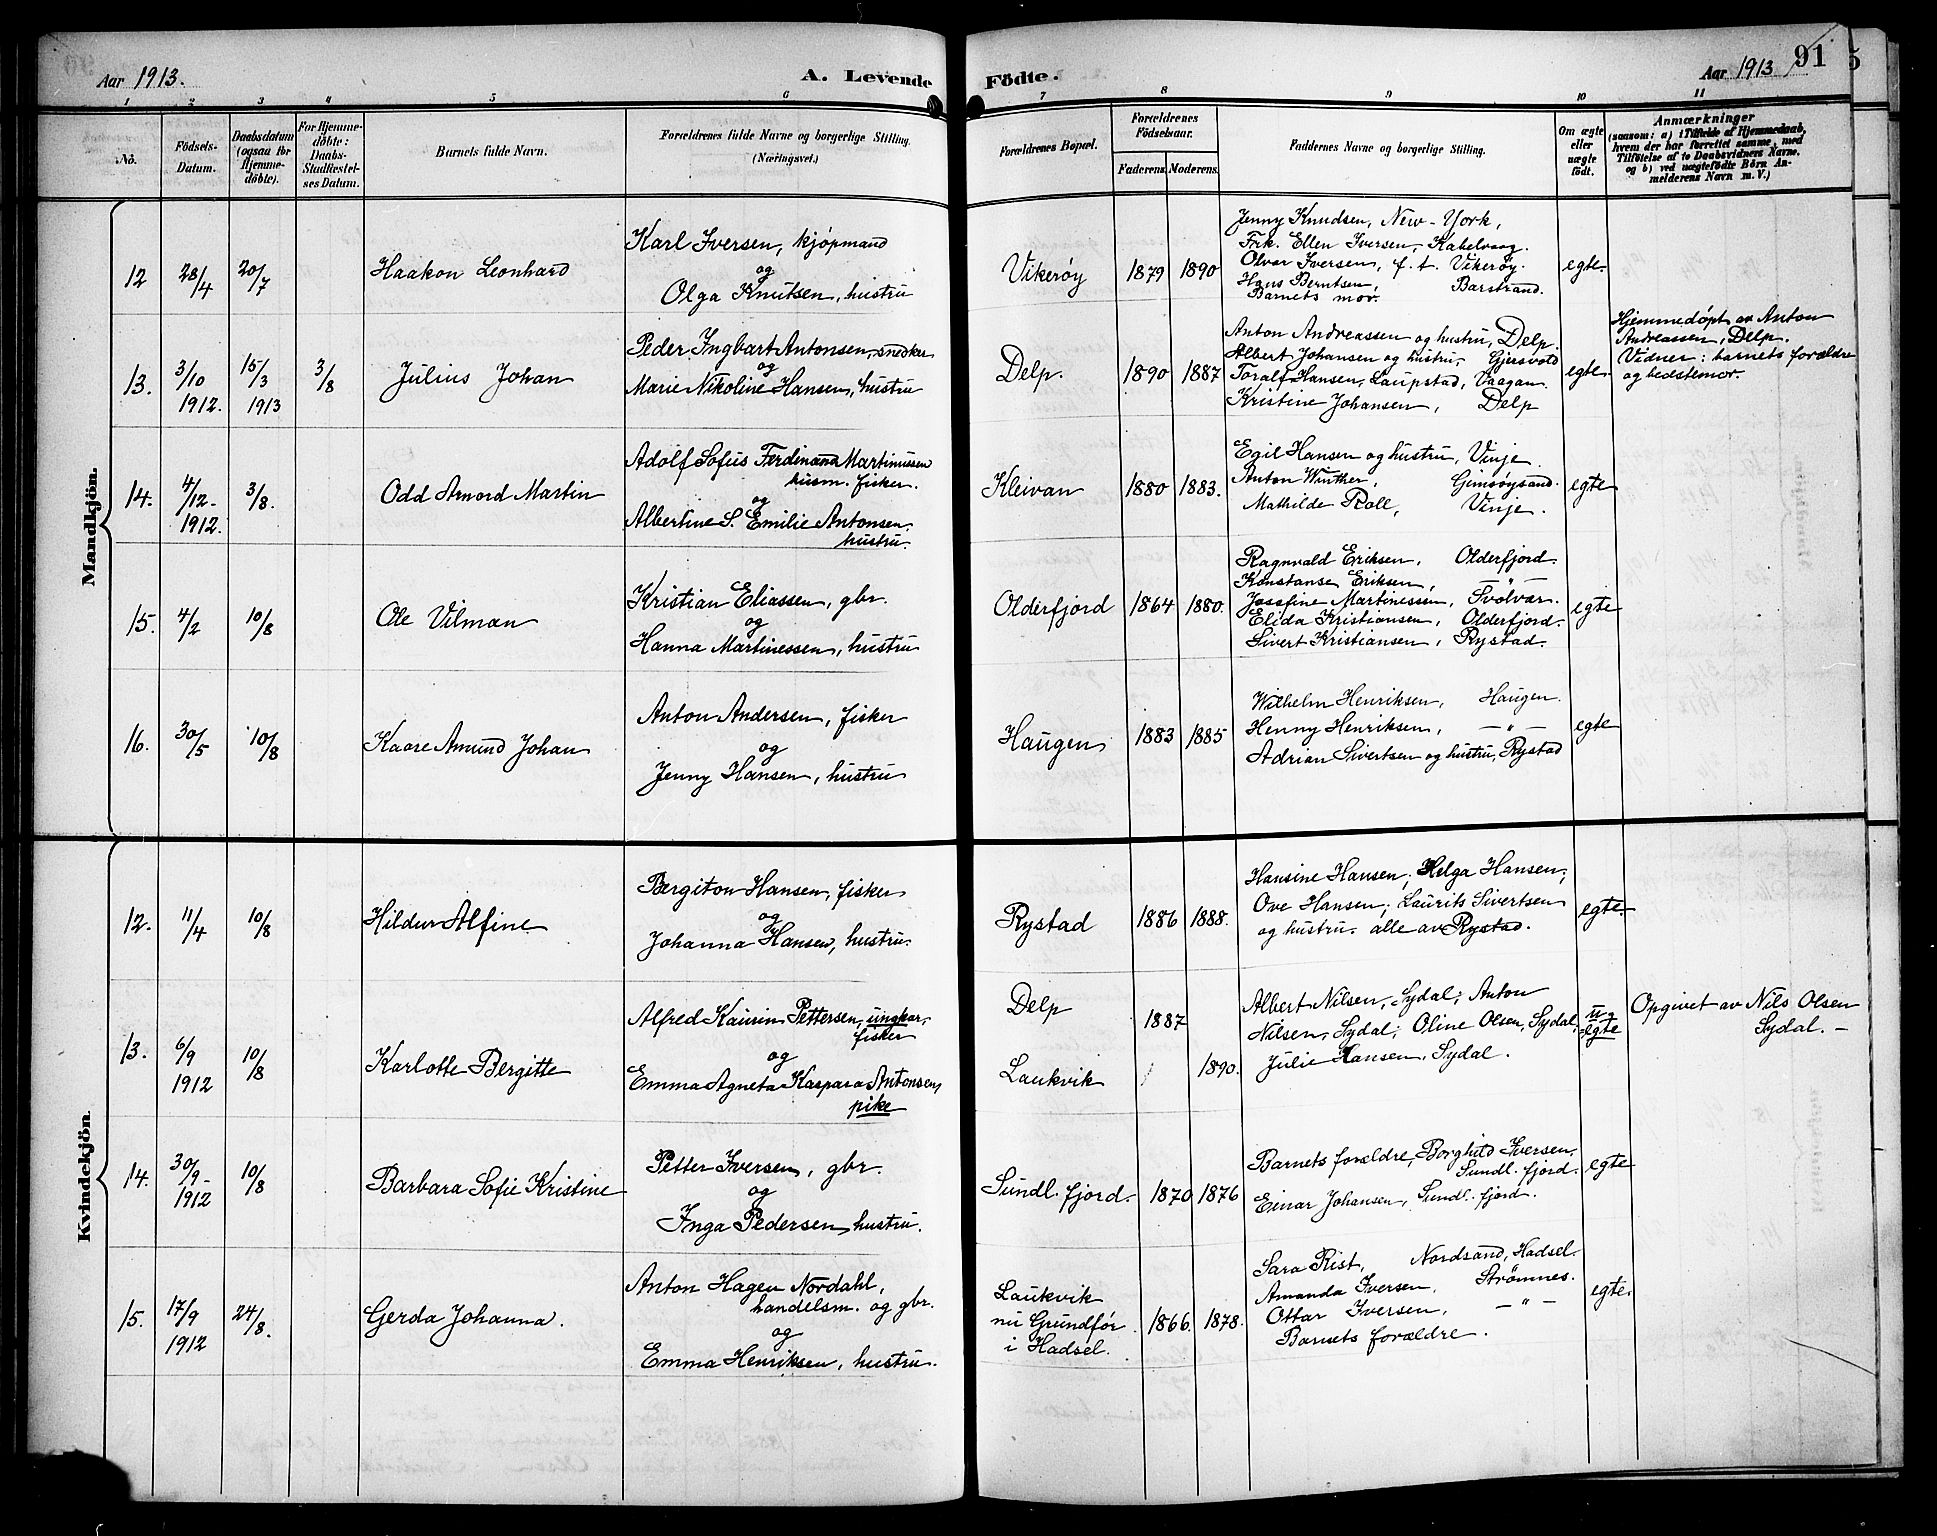 Aar 1913.
A. Levende
Födte.
Aar 1913
91
5
1 2 3 4 5 6 7 8 9 10 11
No.
Födsels-
Datum.
Daabsdatum
(ogsaa for
Hjemme-
döbte).
For Hjemme-
döbte:
Daabs-
Stadfæstel-
ses Datum.
Barnets fulde Navn.
Forældrenes fulde Navne og borgerlige Stilling.
(Næringsvei.)
Forældrenes Bopæl.
Forældrenes
Födselsaar.
Faderens.
Moderens.
Faddernes Navne og borgerlige Stilling.
Om ægte
eller
uægte
födt.
Anmærkninger
(saasom: a) i Tilfælde af Hjemmedaab,
hvem der har forrettet samme, med
Tilföielse af to Daabsvidners Navne,
og b) ved uægtefödte Börn An-
melderens Navn m. V.)
Mandkjön.
12
28/4
20/7
Haakon Leonhard
Karl Iversen, kjøpmand
og
Olga Knutsen, hustru
Vikerøy
1879
1890
Jenny Knudsen, New-York,
Frk. Ellen Iversen, Kabelvaag.
Olvar Iversen, f. t. Vikerøy.
Hans Berntsen, Barstrand.
Barnets mor.
egte.
13.
3/10
1912.
15/3
1913
3/8
Julius Johan
Peder Ingbart Antonsen, snedker
og
Marie Nikoline Hansen, hustru
Delp.
1890
1887
Anton Andreassen og hustru, Delp.
Albert Johansen og hustru, Gjersvold
Toralf Hansen, Laupstad, Vaagan.
Kristine Johansen, Delp
egte.
Hjemmedøpt av Anton
Andreassen, Delp.
Vidner: barnets forældre
og bedstemor.
14.
4/12-
1912.
3/8.
Odd Arnord Martin
Adolf Sofus Ferdinand Martinussen
husm. fisker.
og
Albertine S. Emilie Antonsen.
hustru.
Kleivan
1880
1883.
Egil Hansen og hustru, Vinje.
Anton Winther, Gimsøysand.
Mathilde Roll, Vinje.
egte
15.
4/2
10/8
Ole Vilman
Kristian Eliassen, gbr.
og
Hanna Martinessen, hustru
Olderfjord
1864
1880.
Ragnvald Eriksen, Olderfjord.
Konstanse Eriksen, "
Josefine Martinessen, Svolvær.
Elida Kristiansen, Olderfjord.
Sivert Kristiansen, Rystad.
egte
16.
30/5
10/8
Kaare Amund Johan
Anton Andersen, fisker
og
Jenny Hansen, hustru
Haugen
1883
1885
Wilhelm Henriksen, Haugen.
Henny Henriksen, — " —
Adrian Sivertsen og hustru, Rystad
egte
Kvindekjön.
12.
11/4
10/8
Hildur Alfine
Bergiton Hansen, fisker
og
Johanna Hansen, hustru.
Rystad
1886
1888.
Hansine Hansen; Helga Hansen;
Ove Hansen; Laurits Sivertsen
og hustru. alle av Rystad.
egte.
13.
6/9
1912
10/8
Karlotte Bergitte
Alfred Kaurin Pettersen, ungkar,
fisker
og
Emma Agneta Kaspara Antonsen,
pike
Delp
Laukvik
1887
1890.
Albert Nilsen, Sydal; Anton
Nilsen, Sydal; Oline Olsen, Sydal,
Julie Hansen, Sydal.
u-
egte
Opgivet av Nils Olsen
Sydal. —
14.
30/9-
1912
10/8
Barbara Sofie Kristine
Petter Iversen, gbr.
og
Inga Pedersen, hustru.
Sundl. fjord.
1870
1876
Barnets forældre, Borghild Iversen,
Sundl. fjord.
Einar Johansen, Sundl. fjord.
egte
15.
17/9
1912
24/8.
Gerda Johanna.
Anton Hagen Nordahl,
handelsm. og gbr.
og
Emma Henriksen, hustru.
Laukvik
nu Grundfør
i Hadsel.
1866.
1878.
Sara Rist, Nordsand, Hadsel.
Amanda Iversen, Strömnes.
Ottar Iversen, — " —
Barnets forældre.
egte.